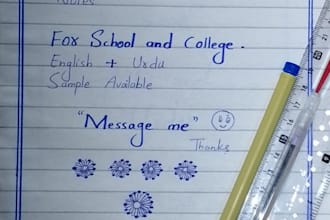 Notes
For School and College.
English + Urdu
Sample Available
"Message me"
Thanks